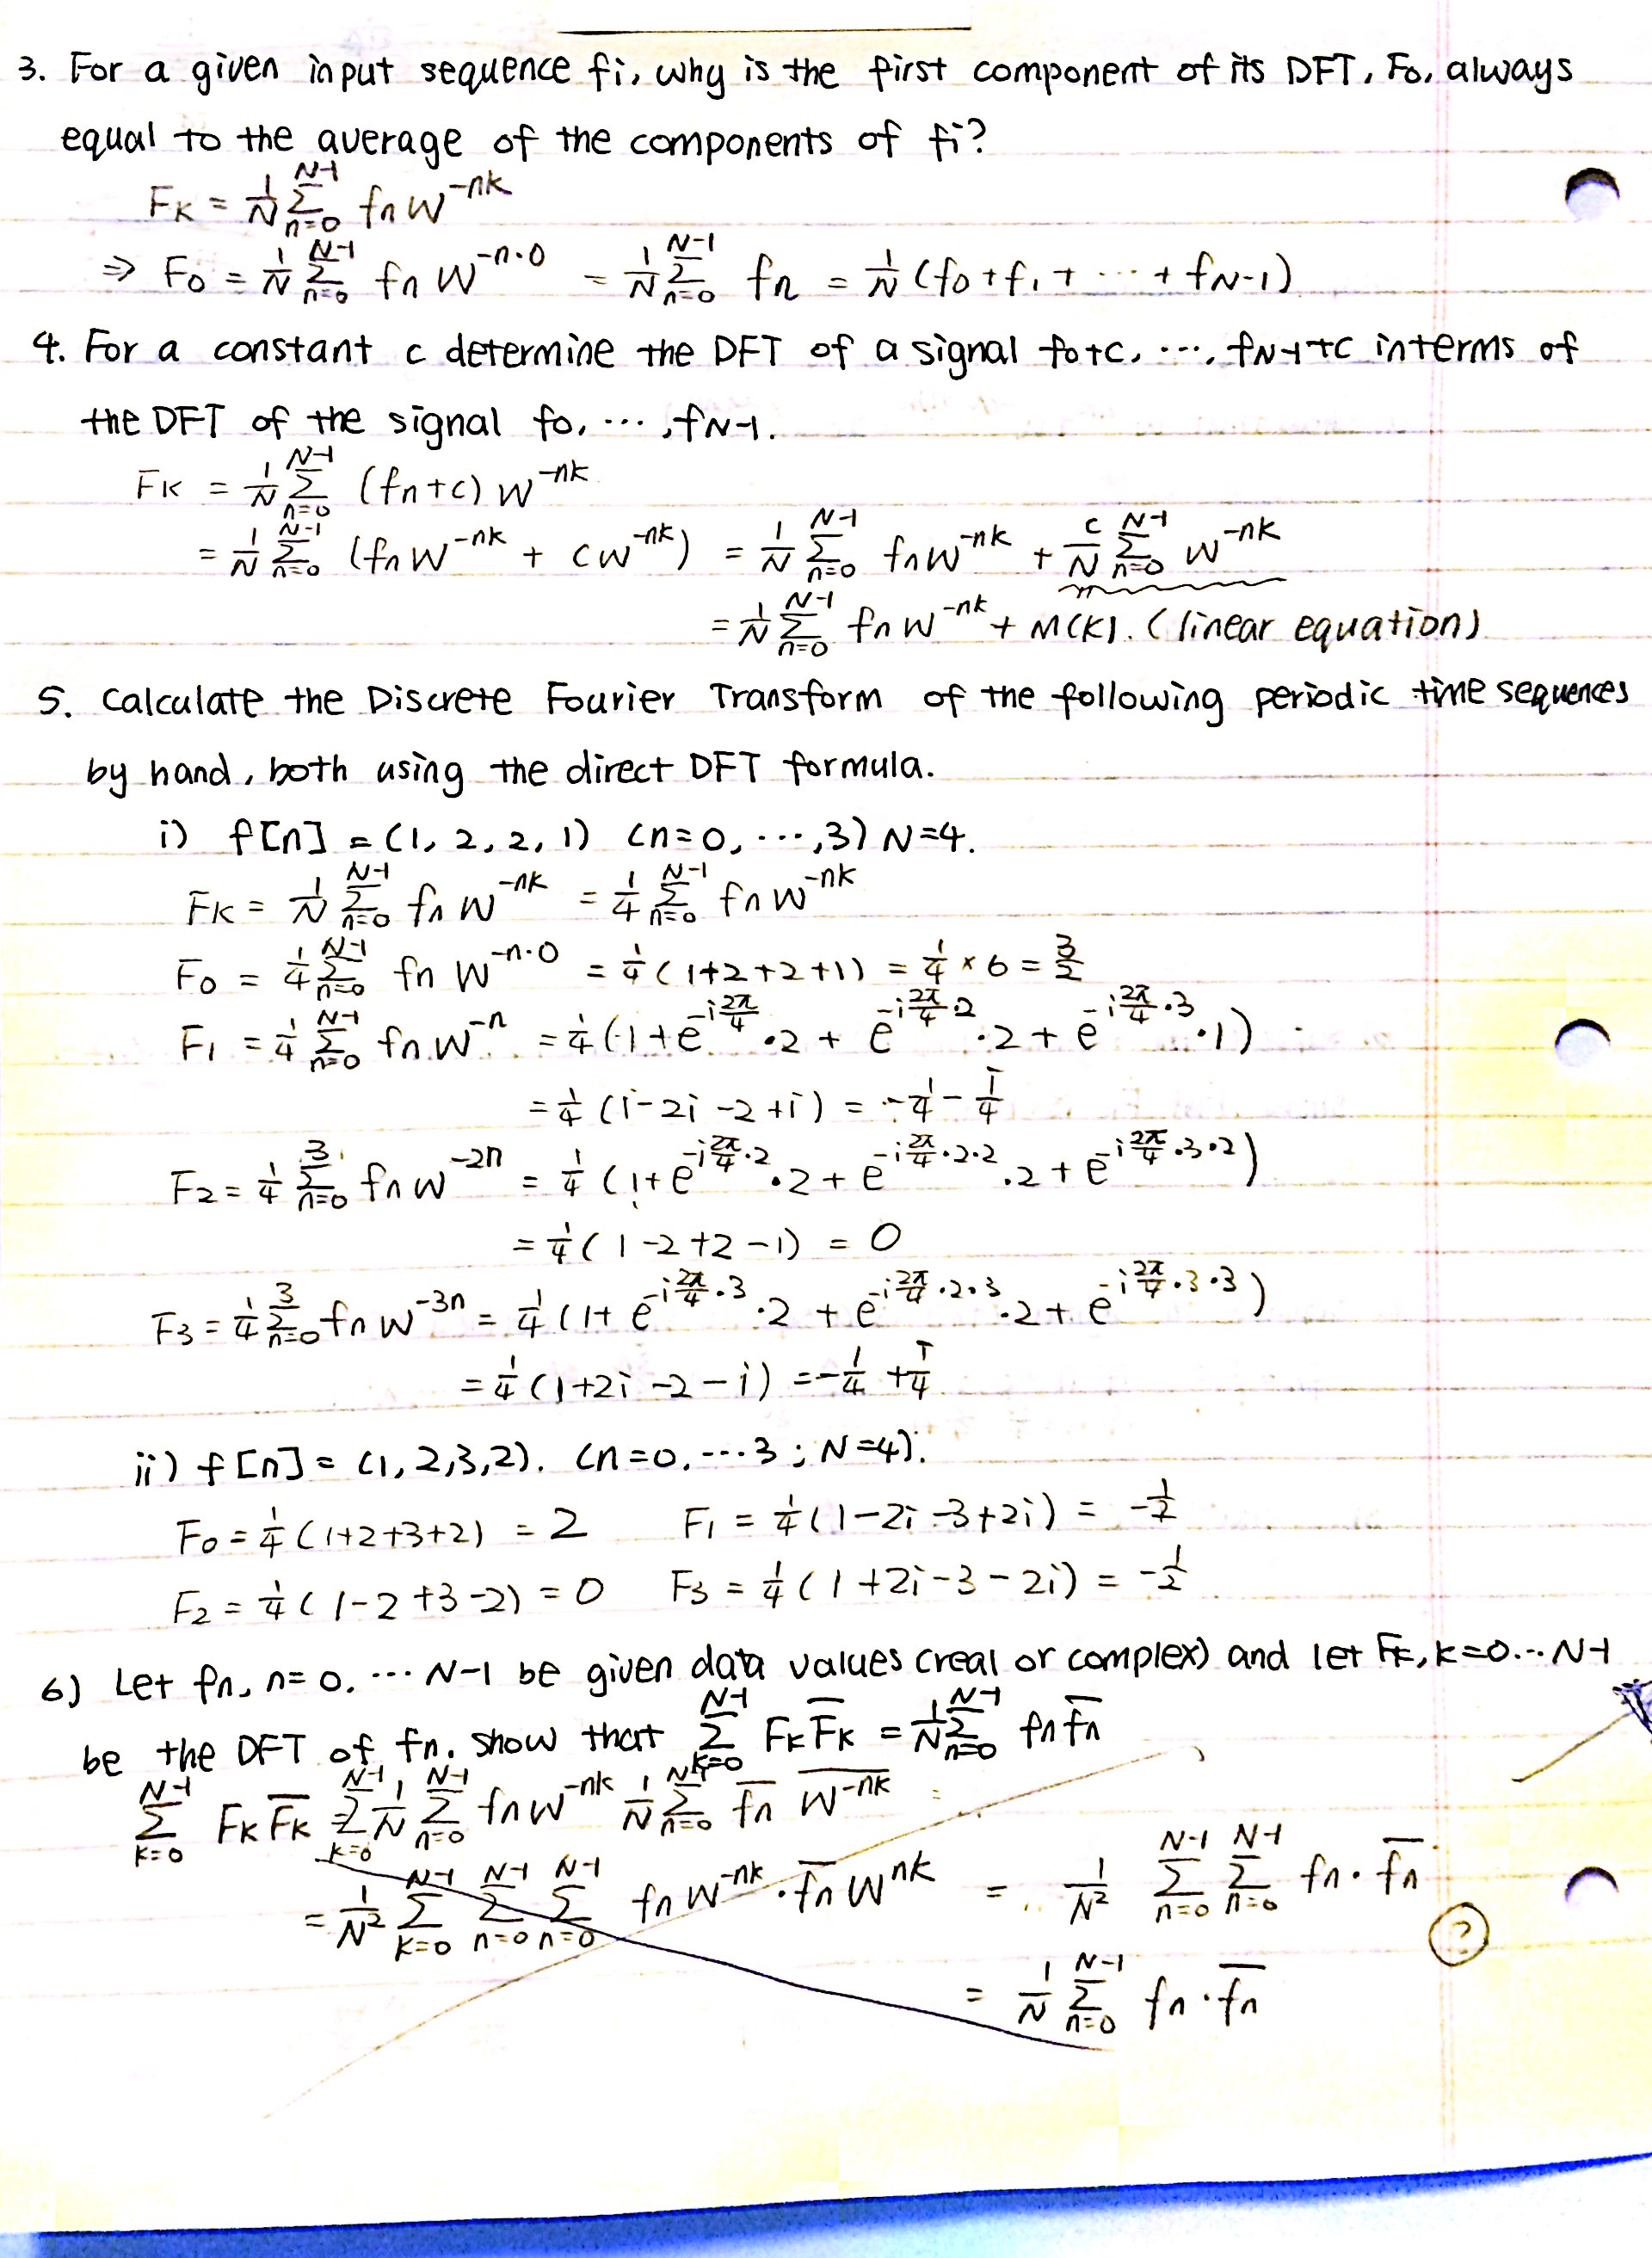 3. For a given input sequence fi, why is the first component of its DFT, F₀, always
equal to the average of the components of fi?
F_K = 1/N Σ_{n=0}^{N-1} f_n W^{-nk}
⇒ F₀ = 1/N Σ_{n=0}^{N-1} f_n W^{-n·0} = 1/N Σ_{n=0}^{N-1} f_n = 1/N (f₀+f₁+ ··· + f_{N-1})
4. For a constant c determine the DFT of a signal f₀+c, ···, f_{N-1}+c interms of
the DFT of the signal f₀, ···, f_{N-1}.
F_K = 1/N Σ_{n=0}^{N-1} (f_n+c) W^{-nk}
= 1/N Σ_{n=0}^{N-1} (f_n W^{-nk} + cW^{-nk}) = 1/N Σ_{n=0}^{N-1} f_n W^{-nk} + c/N Σ_{n=0}^{N-1} W^{-nk}
= 1/N Σ_{n=0}^{N-1} f_n W^{-nk} + M(K). (linear equation)
5. Calculate the Discrete Fourier Transform of the following periodic time sequences
by hand, both using the direct DFT formula.
i) f[n] = (1, 2, 2, 1) (n=0, ···,3) N=4.
F_K = 1/N Σ_{n=0}^{N-1} f_n W^{-nk} = 1/4 Σ_{n=0}^{N-1} f_n W^{-nk}
F₀ = 1/4 Σ_{n=0}^{N-1} f_n W^{-n·0} = 1/4 (1+2+2+1) = 1/4 × 6 = 3/2
F₁ = 1/4 Σ_{n=0}^{N-1} f_n W^{-n} = 1/4 (1+e^{-i 2π/4}·2 + e^{-i 2π/4·2}·2 + e^{-i 2π/4·3}·1)
= 1/4 (1-2i-2+i) = -1/4 - i/4
F₂ = 1/4 Σ_{n=0}^{3} f_n W^{-2n} = 1/4 (1+e^{-i 2π/4·2}·2 + e^{-i 2π/4·2·2}·2 + e^{-i 2π/4·3·2})
= 1/4 (1-2+2-1) = 0
F₃ = 1/4 Σ_{n=0}^{3} f_n W^{-3n} = 1/4 (1+e^{-i 2π/4·3}·2 + e^{-i 2π/4·2·3}·2 + e^{-i 2π/4·3·3})
= 1/4 (1+2i-2-i) = -1/4 + i/4
ii) f[n] = (1,2,3,2). (n=0, ···3 ; N=4).
F₀ = 1/4 (1+2+3+2) = 2 F₁ = 1/4 (1-2i-3+2i) = -1/2
F₂ = 1/4 (1-2+3-2) = 0 F₃ = 1/4 (1+2i-3-2i) = -1/2
6) Let f_n, n=0, ··· N-1 be given data values (real or complex) and let F_K, k=0···N-1
be the DFT of f_n. show that Σ_{k=0}^{N-1} F_K F̅_K = 1/N Σ_{n=0}^{N-1} f_n f̅_n
Σ_{k=0}^{N-1} F_K F̅_K = Σ_{k=0}^{N-1} 1/N Σ_{n=0}^{N-1} f_n W^{-nk} 1/N Σ_{n=0}^{N-1} f̅_n \overline{W^{-nk}}
= 1/N² Σ_{k=0}^{N-1} Σ_{n=0}^{N-1} Σ_{n=0}^{N-1} f_n W^{-nk} · f̅_n W^{nk} = 1/N² Σ_{n=0}^{N-1} Σ_{n=0}^{N-1} f_n · f̅_n
?
= 1/N Σ_{n=0}^{N-1} f_n · f̅_n